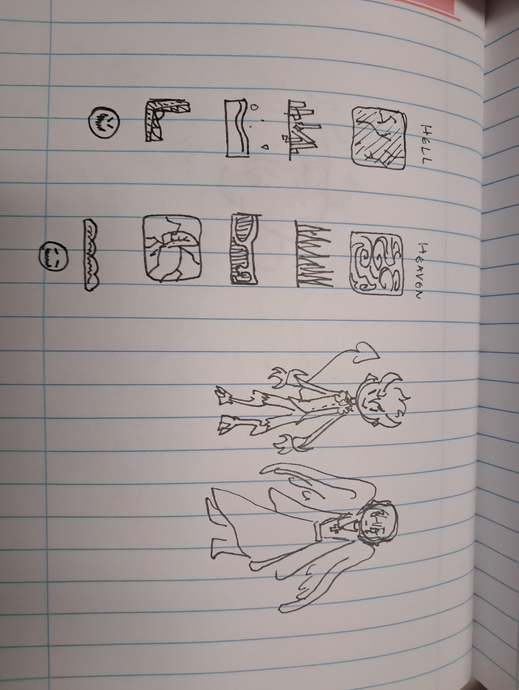 HELL
HEAVEN